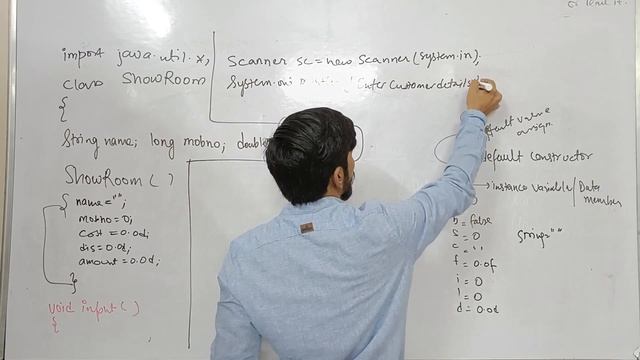 or leave it.
import java.util.*;
class ShowRoom
{
String name; long mobno; double
ShowRoom()
{ name="";
mobno=0;
cost=0.0d;
dis=0.0d;
amount=0.0d;
}
void input()
{
Scanner sc=new Scanner(system.in);
System.out Enter Customer details
default value
assign
default constructor
→instance variable/Data
member
b=false
S=0
c=' '
f=0.0f
i=0
l=0
d=0.0d
String=""